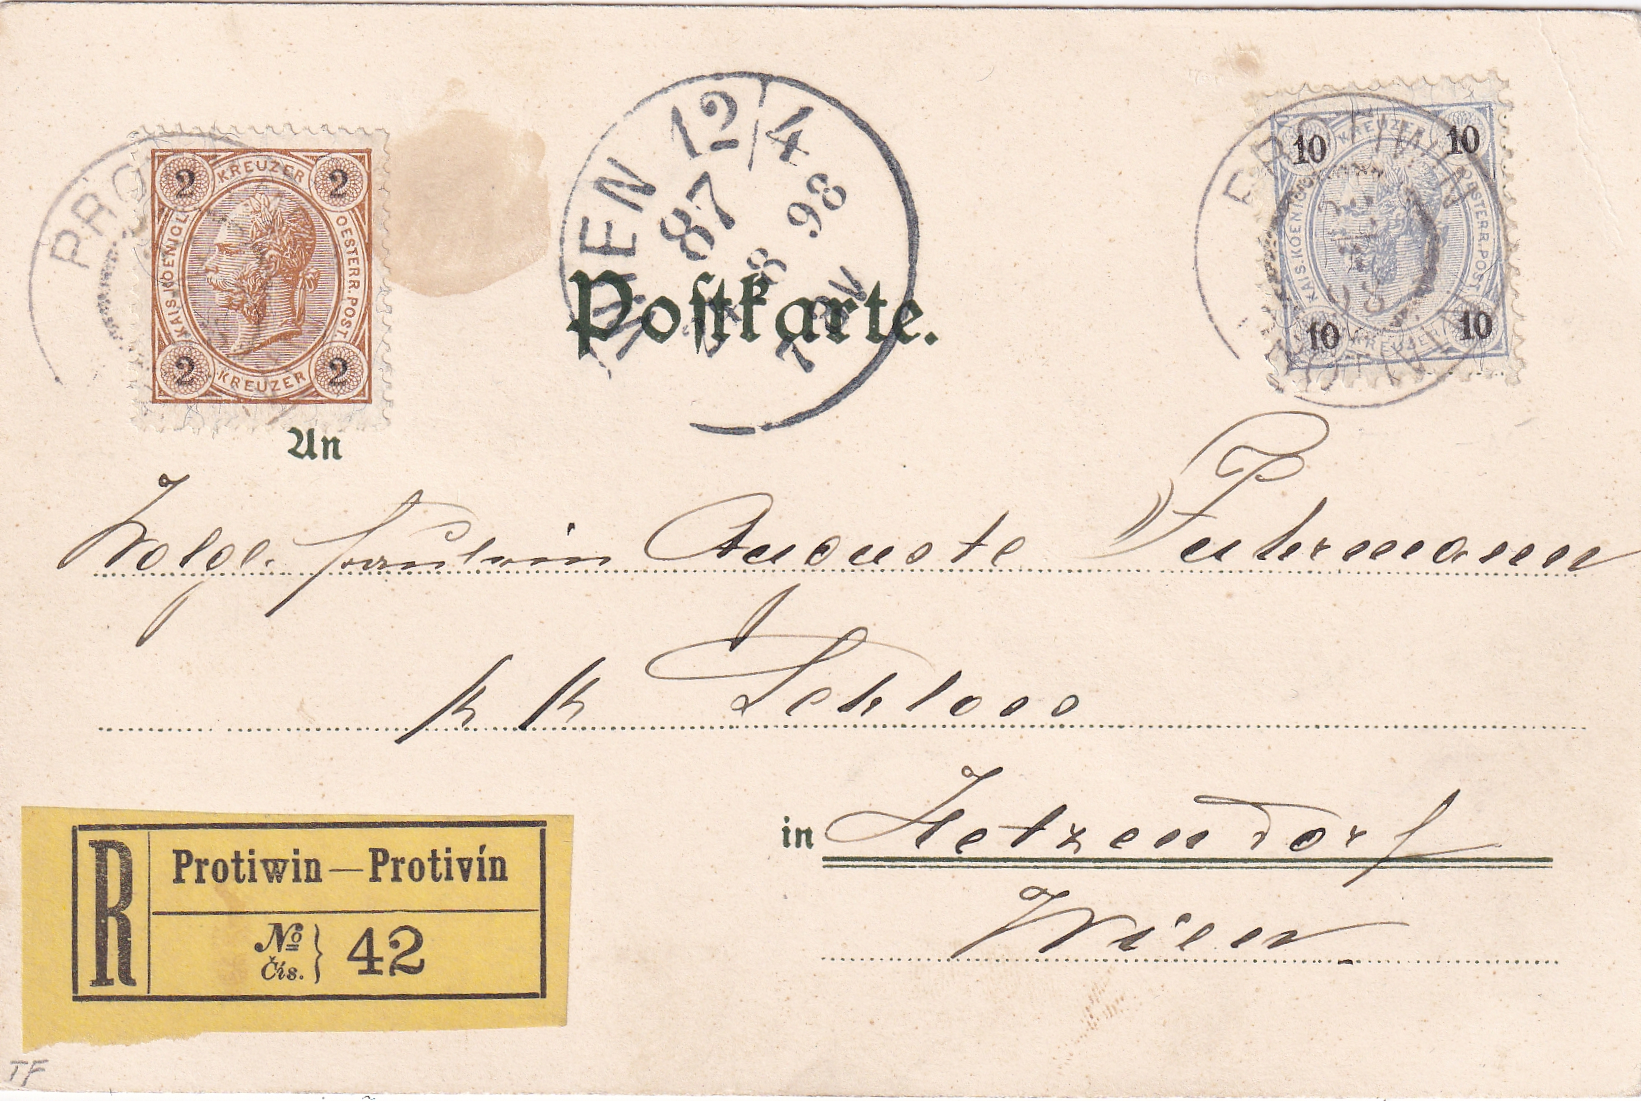 2 KREUZER 2
KAIS. KOENIGL. OESTERR. POST.
2 KREUZER 2
WIEN 12/4
87
8 98
7
10 KREUZER 10
KAIS. KOENIGL. OESTERR. POST.
10 KREUZER 10
PROTIWIN
PROTIVIN
Postkarte.
An
Auguste Fuhrmann
k k Schloss
in Hetzendorf
Wien
R
Protiwin—Protivín
No
Čís. } 42
TF